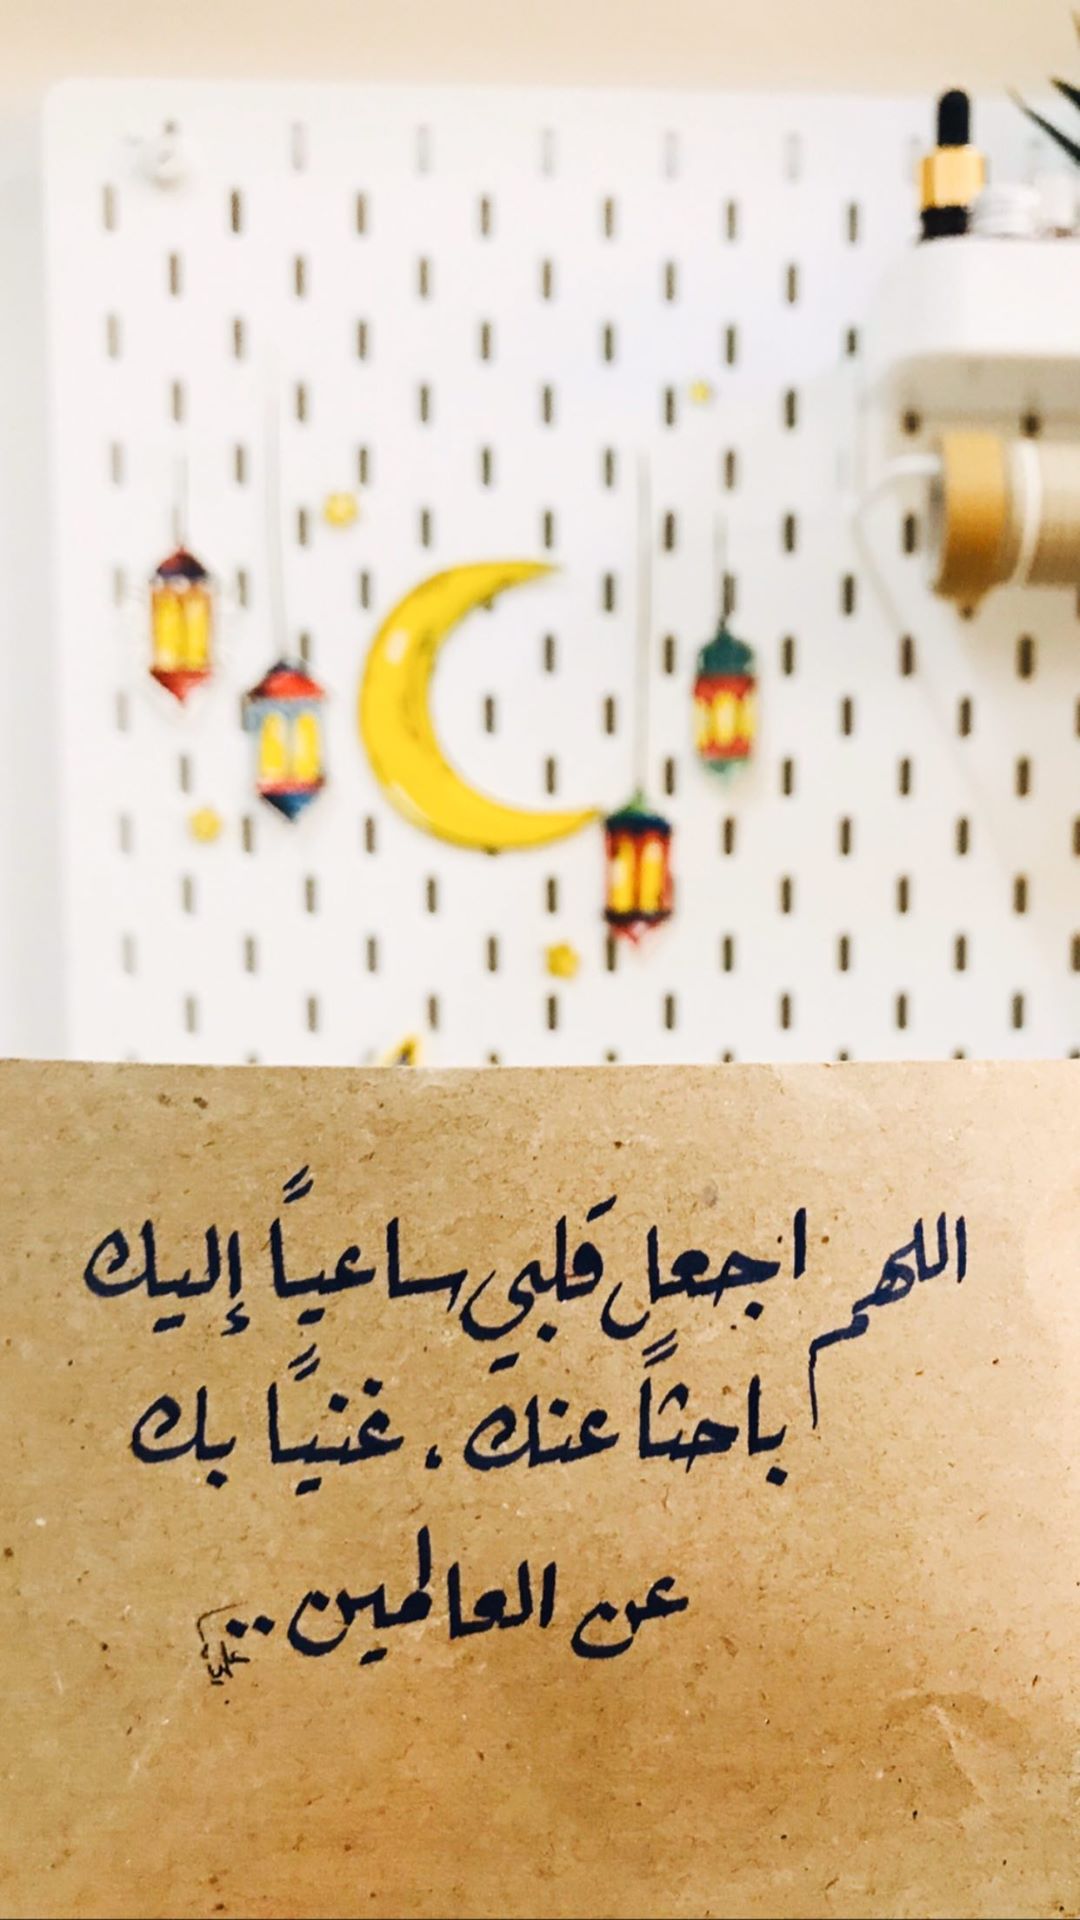 اللهم اجعل قَلبي ساعياً إليك
باحثاً عنك . غنياً بك
عن العالمين ..